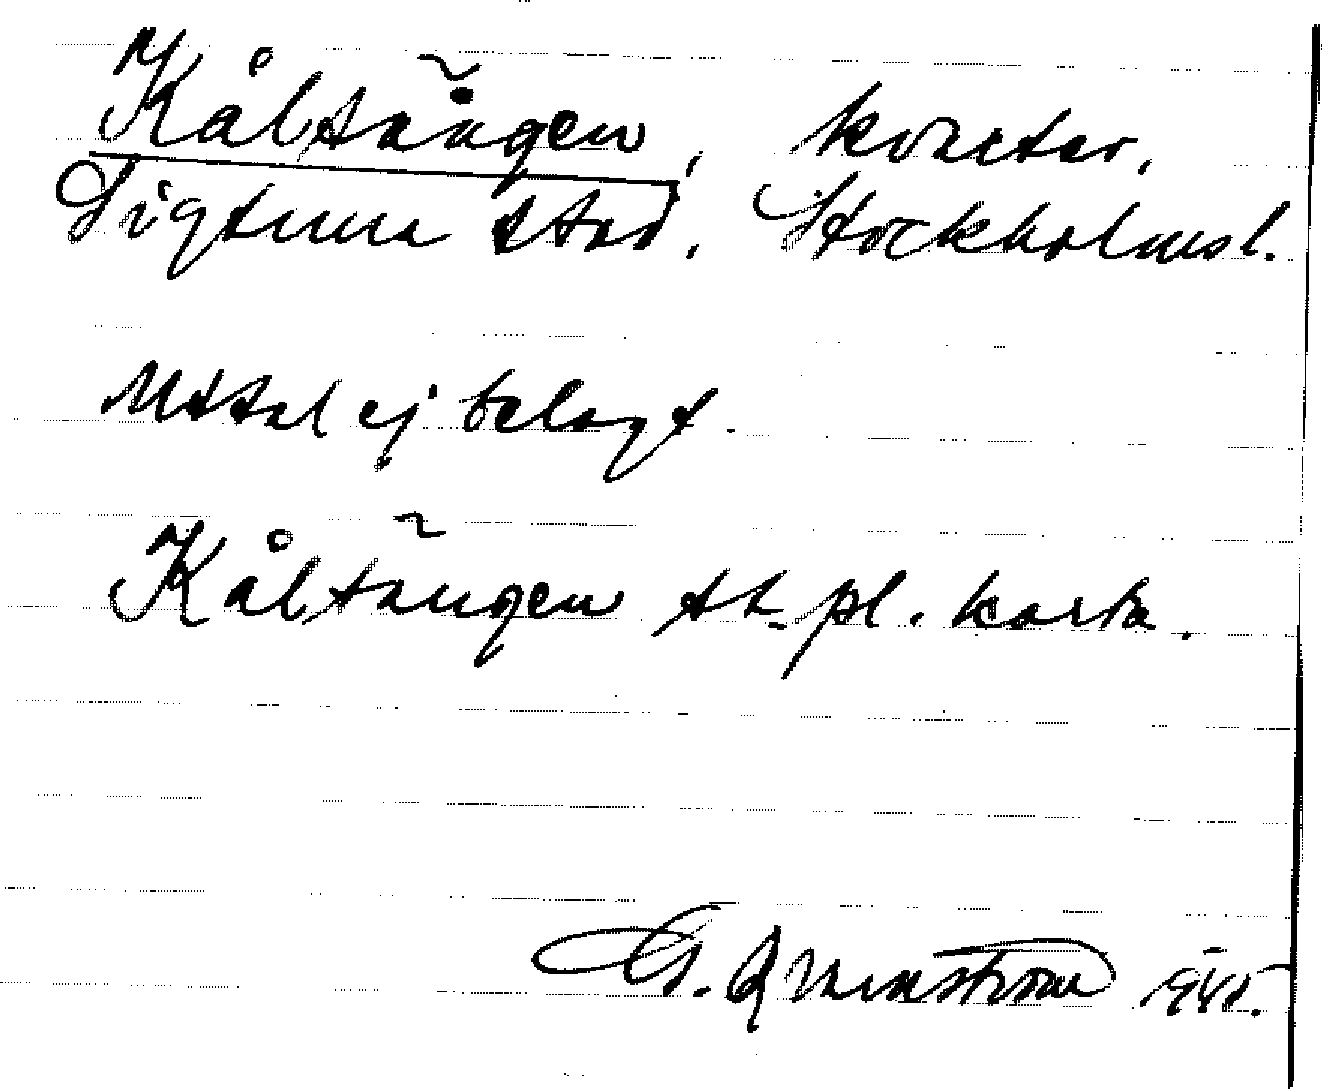 Kåltängen, kvarter,
Sigtuna stad, Stockholmsl.
Uttal ej belagt.
Kåltängen st. pl. karta.
G. Qvarnström 1945.